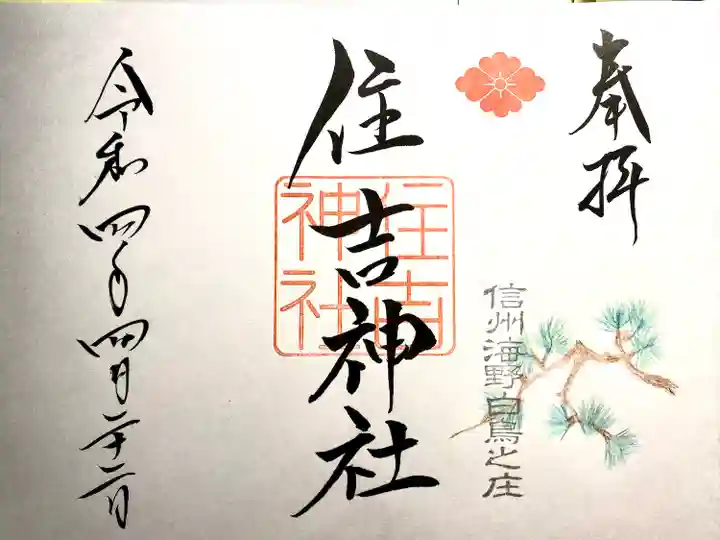 奉拝
信州海野白鳥之庄
住吉神社
住吉
神社
令和四年四月二十二日